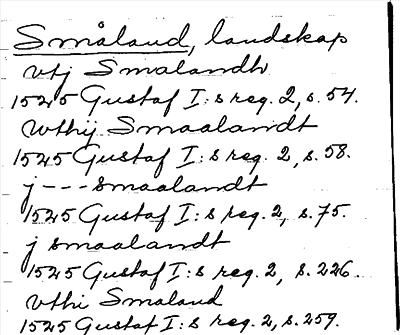 Småland, landskap
vtj Smalandh
1525 Gustaf I:s reg. 2, s. 54.
wthij Smaalandt
1525 Gustaf I:s reg. 2, s. 58.
j --- smaalandt
1525 Gustaf I:s reg. 2, s. 75.
j smaalandt
1525 Gustaf I:s reg. 2, s. 226.
vthi Smaland
1525 Gustaf I:s reg. 2, s. 259.